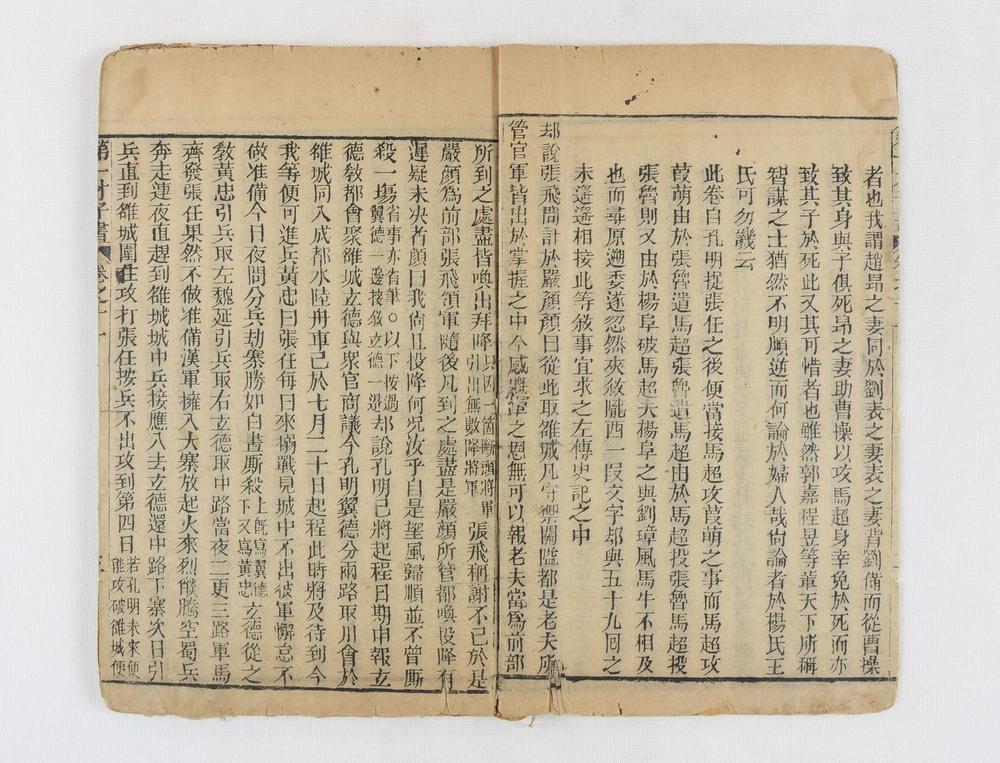 者也我謂趙昂之妻同於劉表之妻表之妻背劉備而從曹操
致其身與子俱死昂之妻助曹操以攻馬超身幸免於死而亦
致其子於死此又其可惜者也雖然郭嘉程昱等輩天下所稱
智謀之士猶然不明順逆而何論於婦人哉尚論者於楊氏王
氏可勿譏云
此卷自孔明捉張任之後便當接馬超攻葭萌之事而馬超攻
葭萌由於張魯遣馬超張魯遣馬超由於馬超投張魯馬超投
張魯則又由於楊阜破馬超夫楊阜之與劉璋風馬牛不相及
也而尋原遡委遂忽然夾敘隴西一段文字却與五十九回之
末遙遙相接此等敘事宜求之左傳史記之中
却說張飛問計於嚴顏顏曰從此取雒城凡守禦關隘都是老夫所
管官軍皆出於掌握之中今感將軍之恩無可以報老夫當爲前部
所到之處盡皆喚出拜降只因一箇斷頭將軍引出無數降將軍張飛稱謝不已於是
嚴顏爲前部張飛領軍隨後凡到之處盡是嚴顏所管都喚投降有
遲疑未決者顏曰我尚且投降何况汝乎自是望風歸順並不曾厮
殺一場省事亦省筆○以下按過翼德一邊接敘玄德一邊却說孔明已將起程日期申報玄
德敎都會聚雒城玄德與衆官商議今孔明翼德分兩路取川會於
雒城同入成都水陸舟車已於七月二十日起程此時將及待到今
我等便可進兵黃忠曰張任每日來搦戰見城中不出彼軍懈怠不
做准備今日夜間分兵劫寨勝如白晝厮殺上旣寫翼德下又寫黃忠玄德從之
敎黃忠引兵取左魏延引兵取右玄德取中路當夜二更三路軍馬
齊發張任果然不做准備漢軍擁入大寨放起火來烈燄騰空蜀兵
奔走連夜直趕到雒城城中兵接應入去玄德還中路下寨次日引
兵直到雒城圍住攻打張任按兵不出攻到第四日若孔明未來便能攻破雒城便
第一才子書 卷之十一